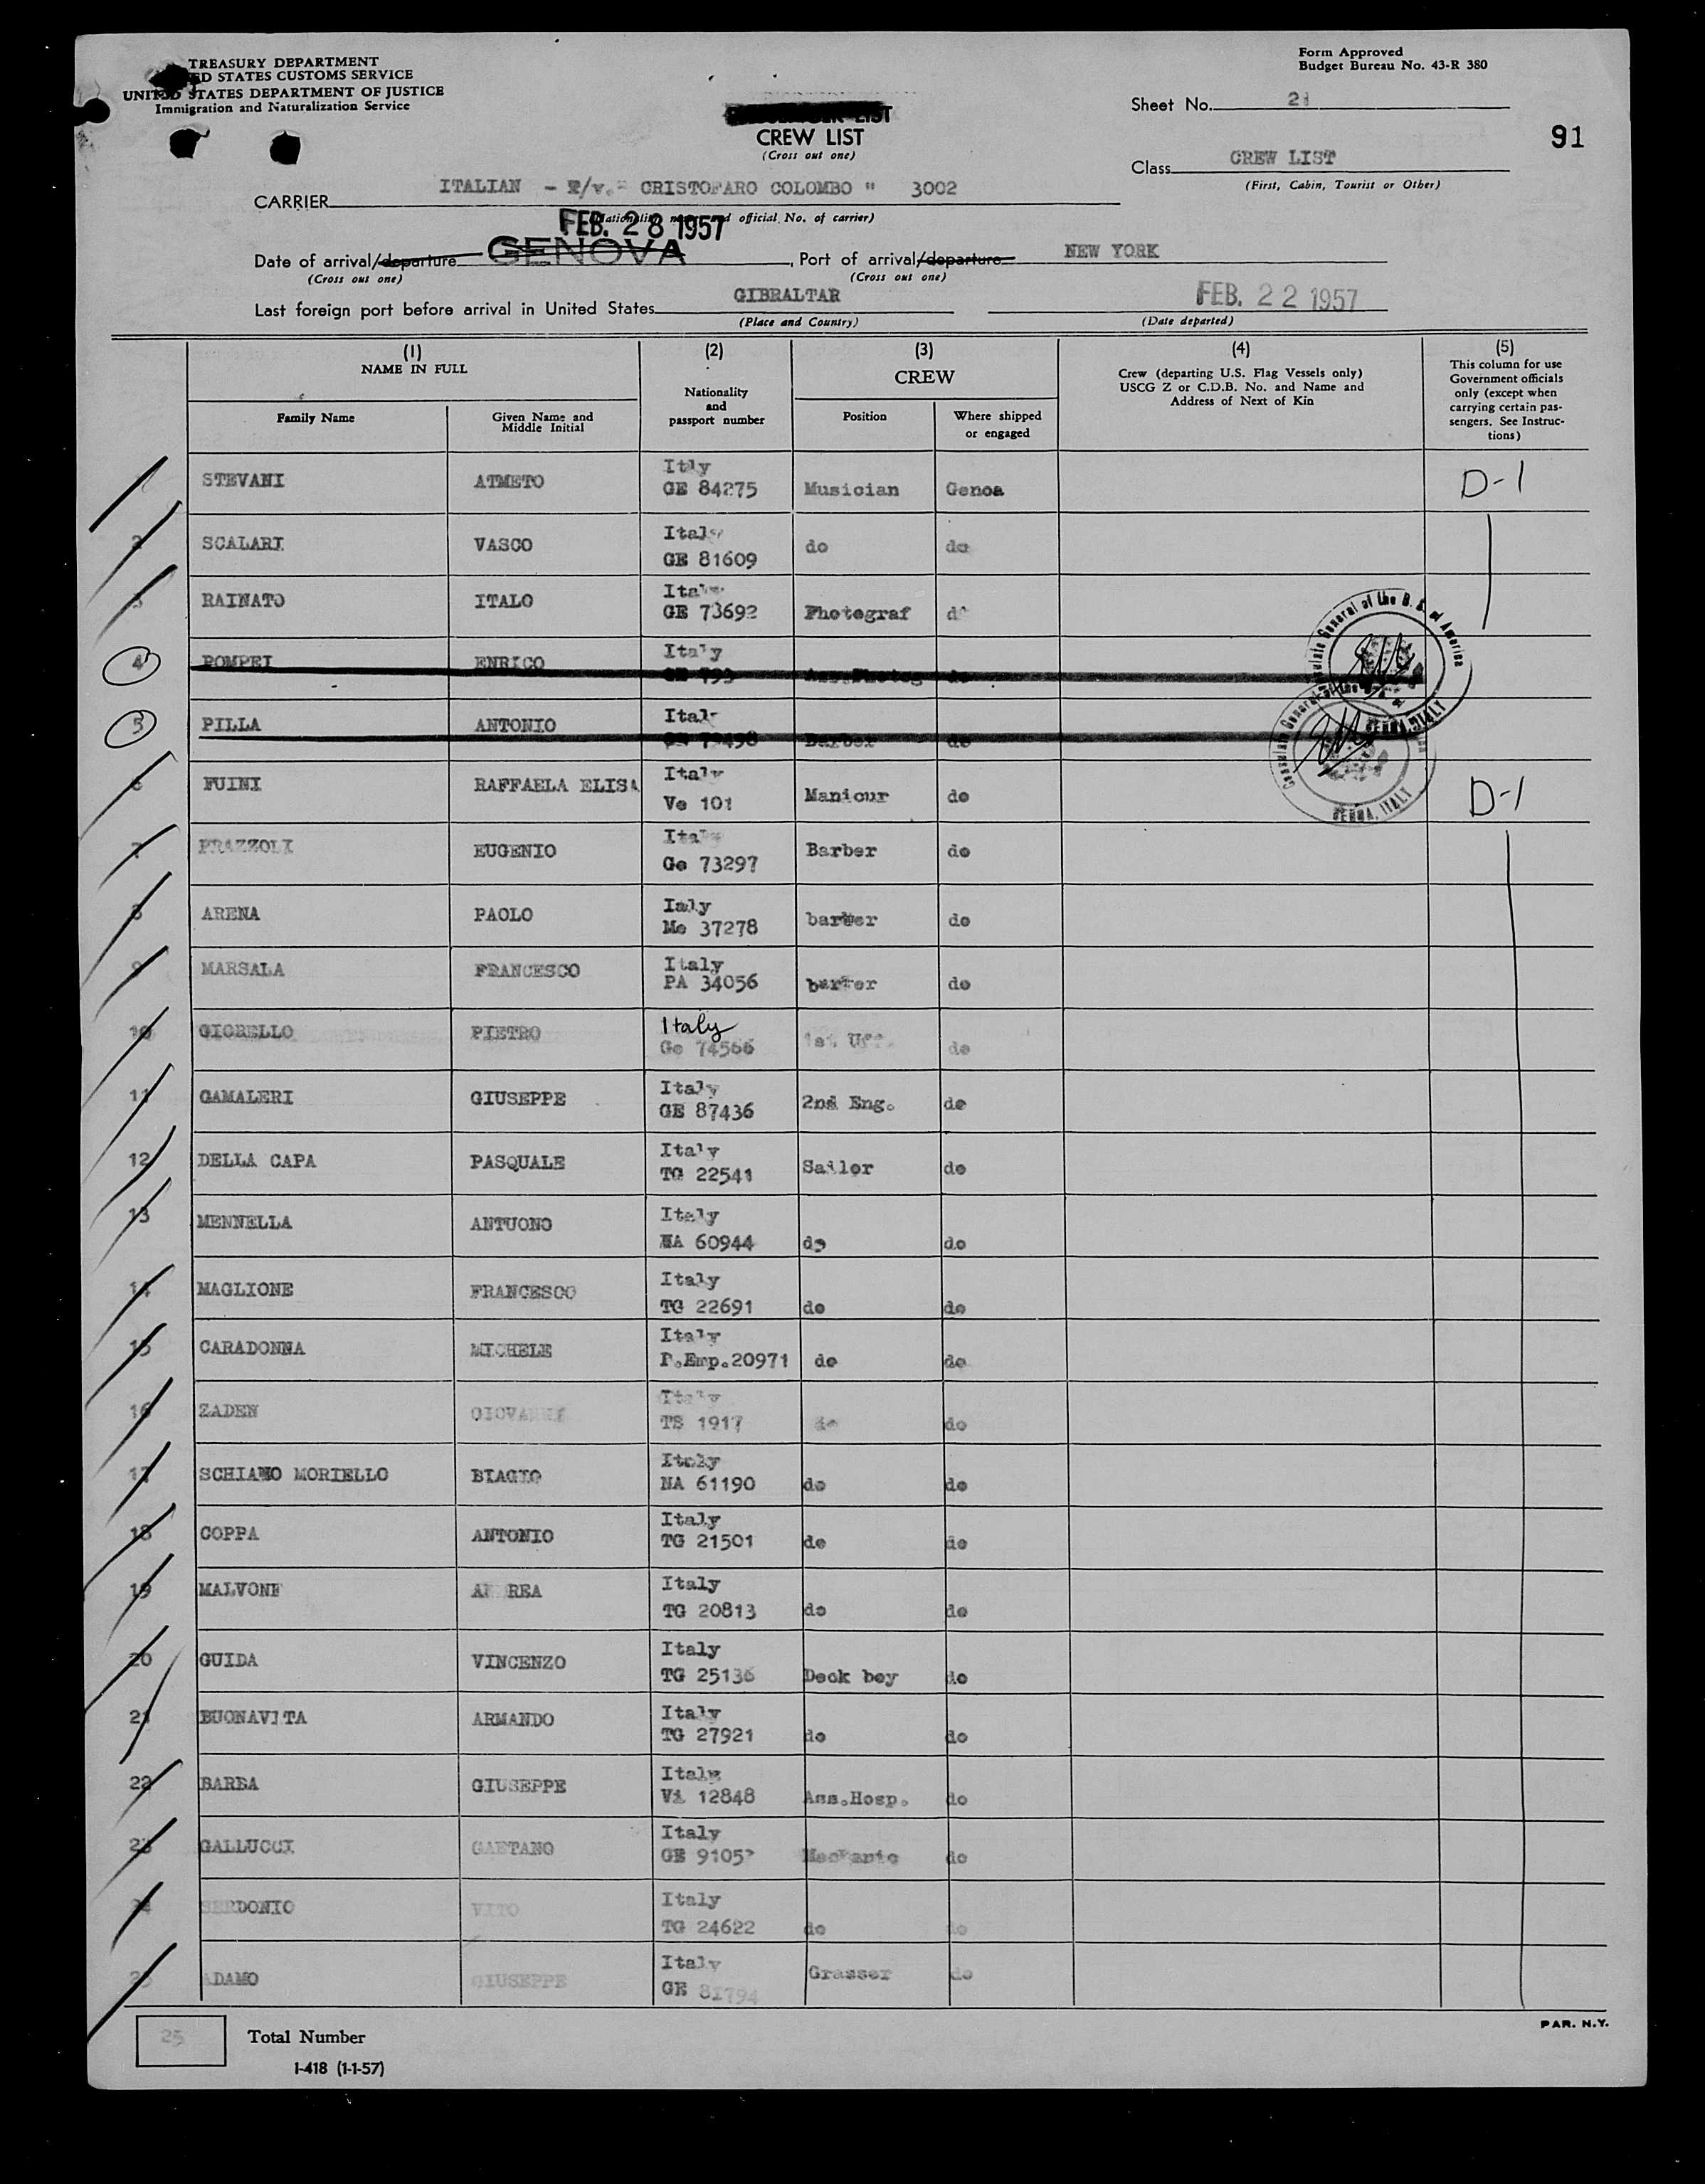 TREASURY DEPARTMENT
STATES CUSTOMS SERVICE
UNITED STATES DEPARTMENT OF JUSTICE
Immigration and Naturalization Service
Form Approved
Budget Bureau No. 43-R 380
Sheet No. 2
91
LIST
CREW LIST
(Cross out one)
Class CREW LIST
(First, Cabin, Tourist or Other)
CARRIER ITALIAN - T/v." CRISTOFARO COLOMBO " 3002
official No. of carrier)
FEB. 28 1957
Date of arrival/departure GENOVA, Port of arrival/departure NEW YORK
(Cross out one) (Cross out one)
Last foreign port before arrival in United States GIBRALTAR FEB. 22 1957
(Place and Country) (Date departed)
(1) NAME IN FULL
Family Name
Given Name and Middle Initial
(2)
Nationality and passport number
(3)
CREW
Position
Where shipped or engaged
(4)
Crew (departing U.S. Flag Vessels only)
USCG Z or C.D.B. No. and Name and
Address of Next of Kin
(5)
This column for use
Government officials
only (except when
carrying certain pas-
sengers. See Instruc-
tions)
STEVANI ATMETO Itly GE 84275 Musician Genoa D-1
2 SCALARI VASCO Italy GE 81609 do do
3 RAINATO ITALO Italy GE 73692 Photegraf do
4 POMPEI ENRICO Italy
5 PILLA ANTONIO Italy Barber do
Consulate General of the U. S. of America
GENOA, ITALY
Consulate General of the
GENOA, ITALY
6 FUINI RAFFAELA ELISA Italy Ve 101 Manicur do D-1
7 FRAZZOLI EUGENIO Italy Ge 73297 Barber do
8 ARENA PAOLO Ialy Me 37278 barber do
9 MARSALA FRANCESCO Italy PA 34056 barber do
10 GIORELLO PIETRO Italy Ge 74566 1st Uff. do
11 GAMALERI GIUSEPPE Italy GE 87436 2nd Eng. do
12 DELLA CAPA PASQUALE Italy TG 22541 Sailor do
13 MENNELLA ANTUONO Italy NA 60944 do do
14 MAGLIONE FRANCESCO Italy TG 22691 do do
15 CARADONNA MICHELE Italy P.Emp.20971 do do
16 ZADEN GIOVANNI Italy TS 1917 do do
17 SCHIANO MORIELLO BIAGIO Italy NA 61190 do do
18 COPPA ANTONIO Italy TG 21501 do do
19 MALVONE ANDREA Italy TG 20813 do do
20 GUIDA VINCENZO Italy TG 25136 Deck boy do
21 BUONAVITA ARMANDO Italy TG 27921 do do
22 BARBA GIUSEPPE Italy Vi 12848 Ass.Hosp. do
23 GALLUCCI GAETANO Italy GE Mechanic do
24 VITO Italy TG 24622 do do
25 ADAMO GIUSEPPE Italy GE 81794 Grasser do
25 Total Number
I-418 (1-1-57)
PAR. N.Y.